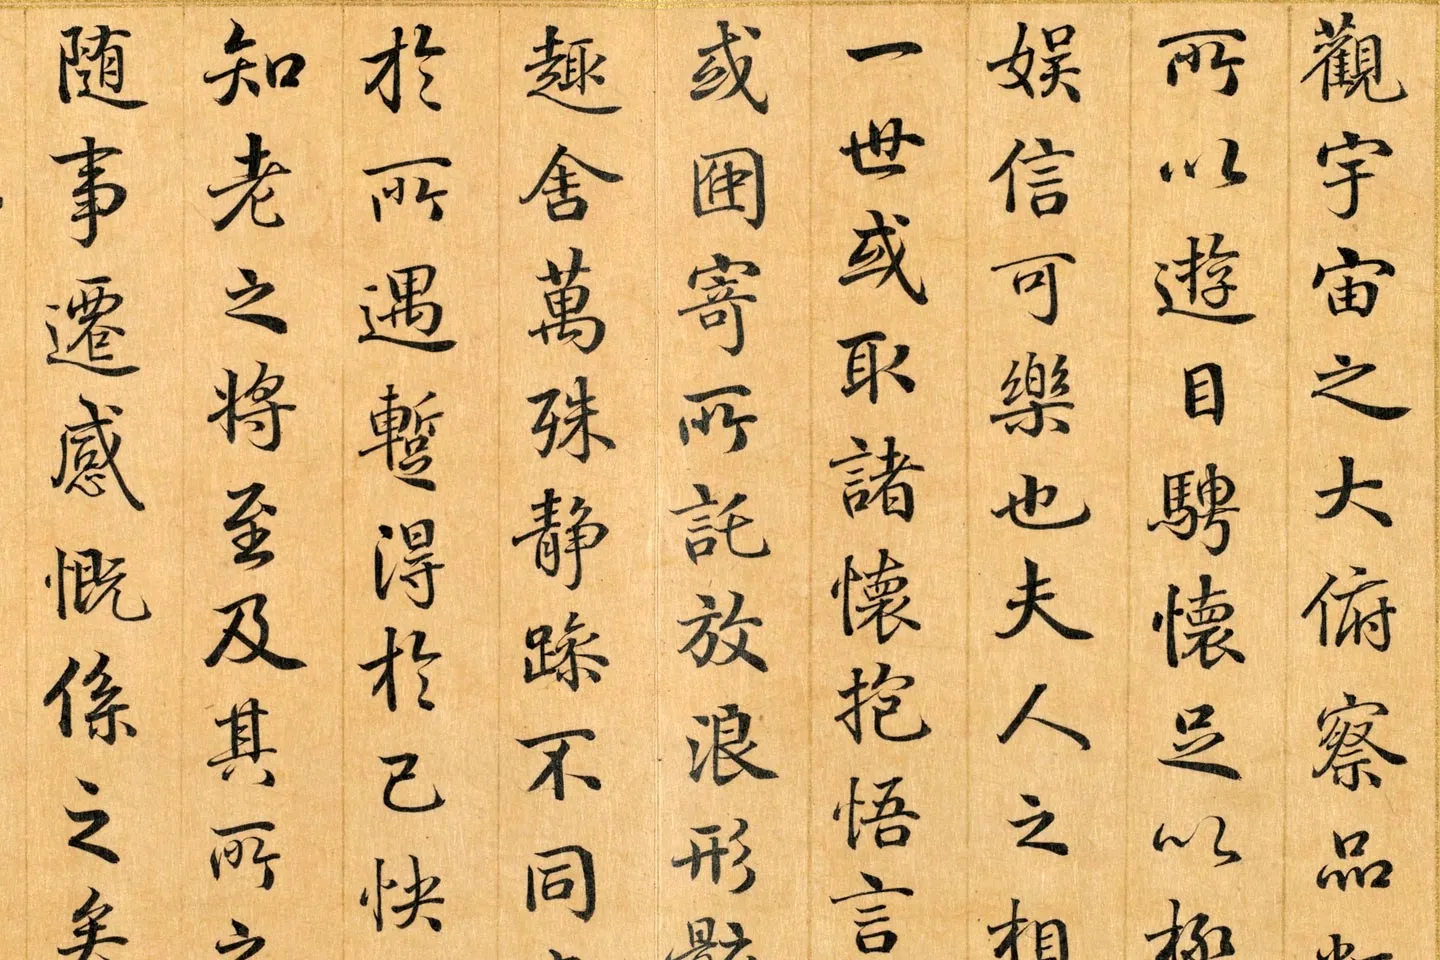 觀宇宙之大俯察品類
所以遊目騁懷足以極
娛信可樂也夫人之相
一世或取諸懷抱悟言
或因寄所託放浪形骸
趣舍萬殊静躁不同
於所遇暫得於己快
知老之將至及其所之
随事遷感慨係之矣